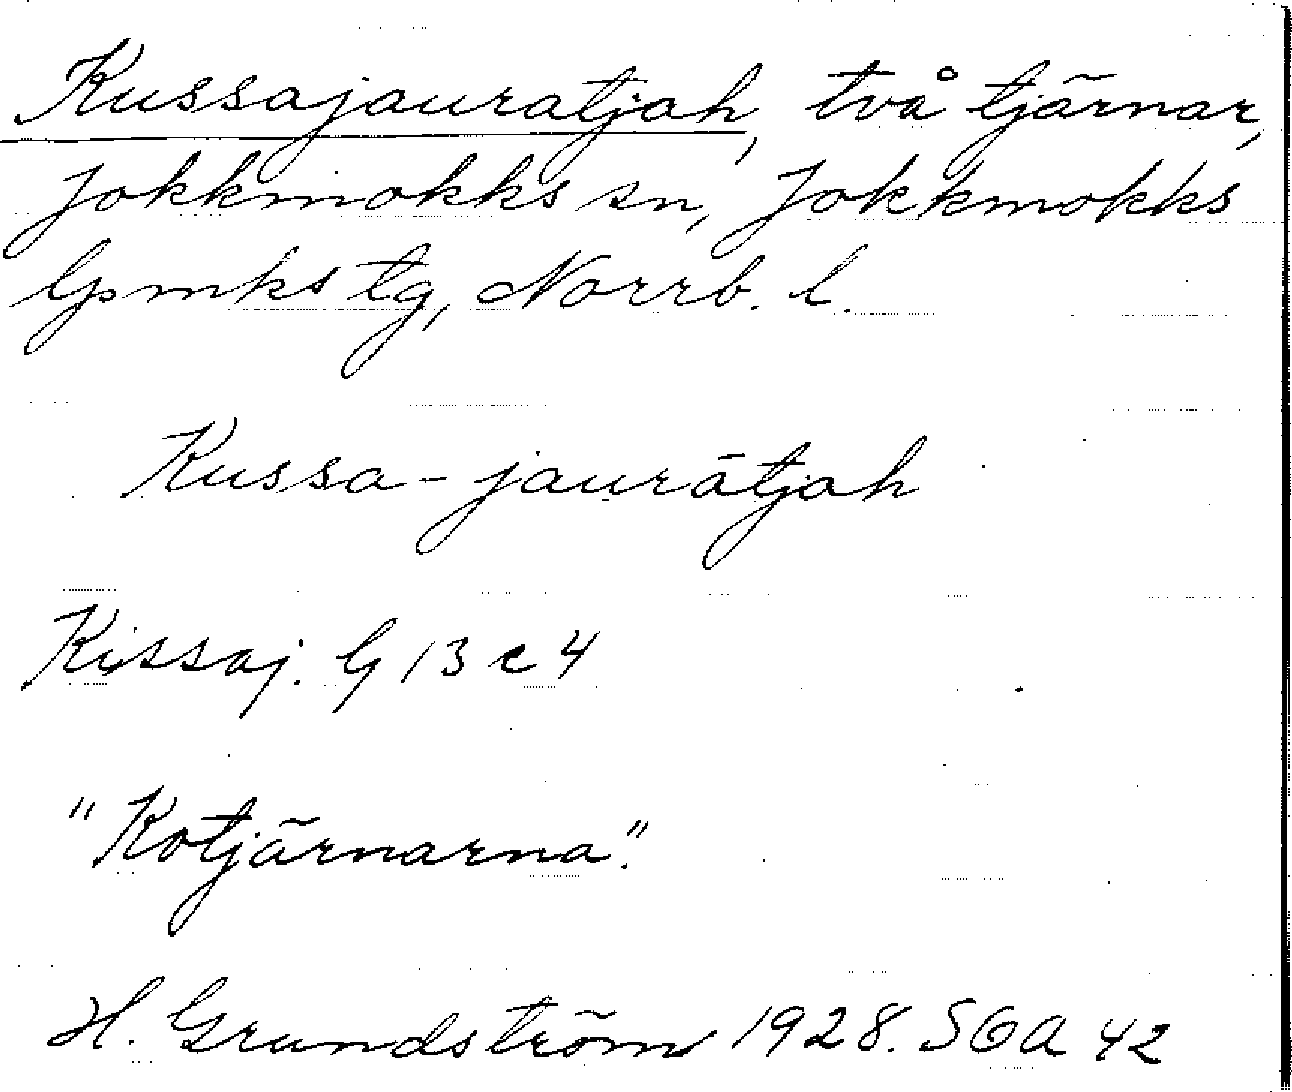 Kussajauratjah, två tjärnar,
Jokkmokks sn, Jokkmokks
lpmks tg, Norrb. l.
Kussa-jaurātjah
Kissaj. G 13 c 4
"Kotjärnarna".
H. Grundström 1928. SOA 42